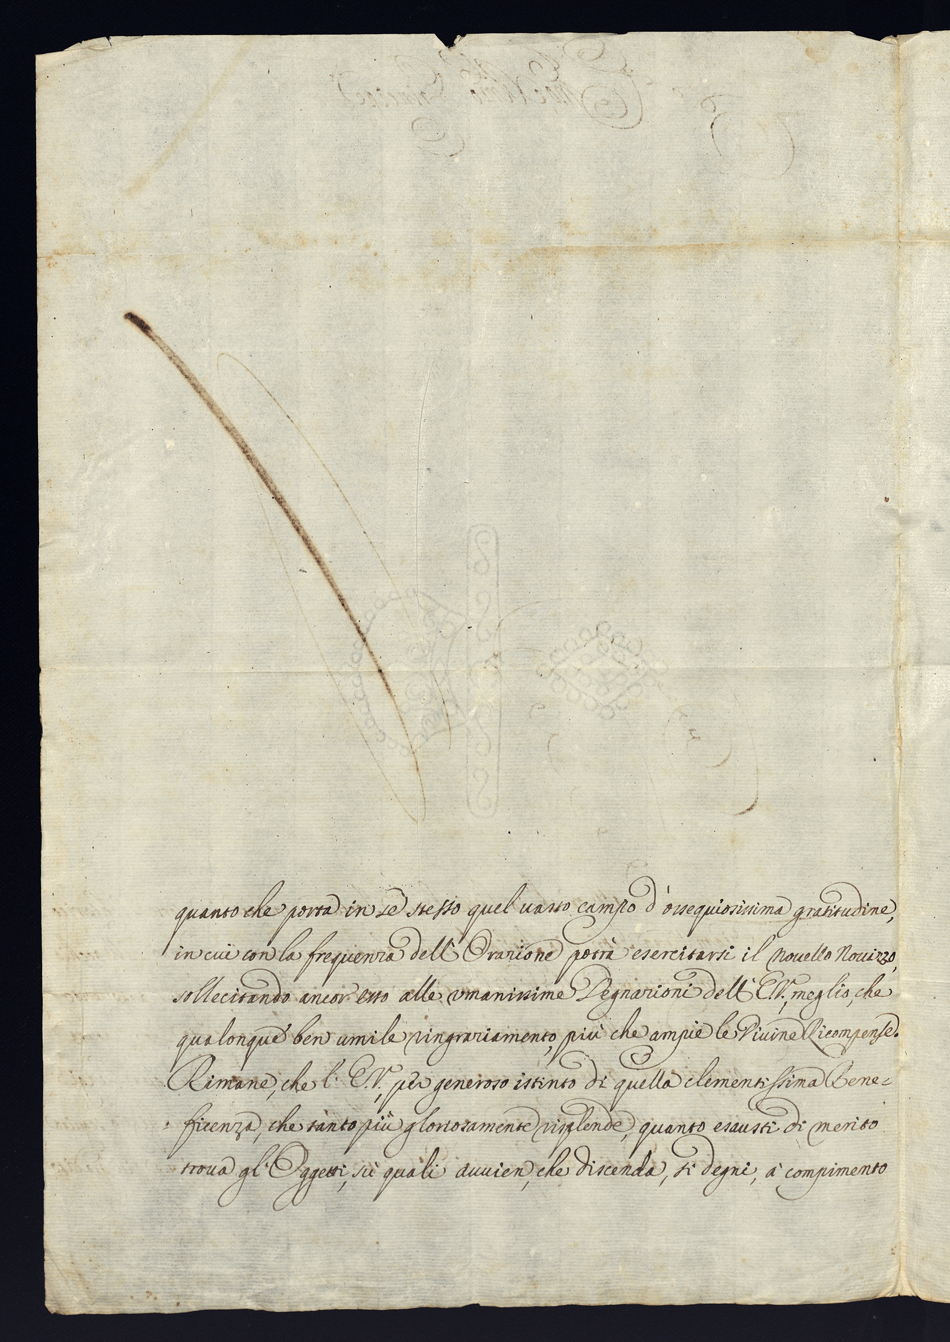 quanto che porta in sè stesso quel vasto campo d'ossequiosissima gratitudine,
in cui con la frequenza dell'Orazione potrà esercitarsi il novello Novizzo,
sollecitando ancor esso alle vmanissime Degnazioni dell'E.V. meglio, che
qualonque ben umile ringraziamento, più che ampie le Divine Ricompense.
Rimane, che l'E.V., per generoso istinto di quella clementissima Bene=
ficenza, che tanto più gloriosamente risplende, quanto esausti di merito
trova gl'Oggetti, sù quali avvien, che discenda, si degni, à compimento